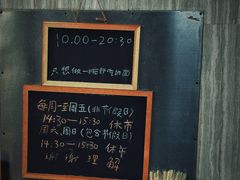 10.00-20:30
只想做一碗好吃的面
每周一至周五(非节假日)
14:30—15:30 休市
周六、周日(包含节假日)
14:30—15:30 休午
谢谢理解